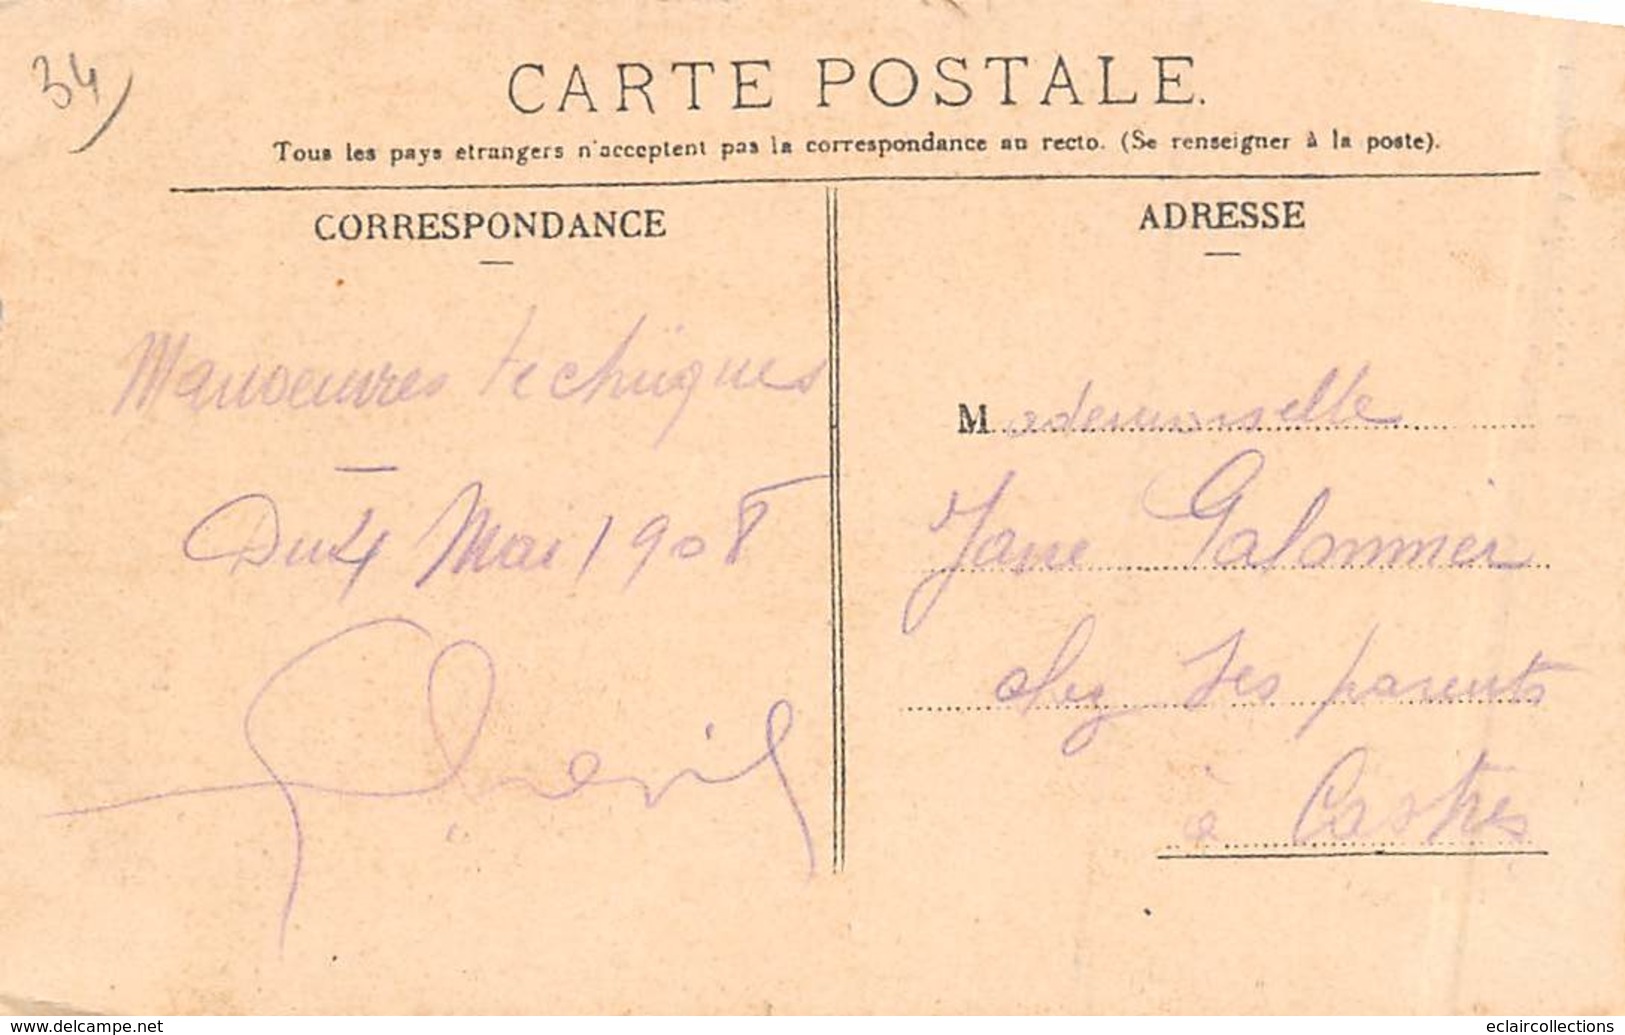 34
CARTE POSTALE.
Tous les pays étrangers n'acceptent pas la correspondance au recto. (Se renseigner à la poste).
CORRESPONDANCE
Manoeuvres techniques
Du 4 Mai 1908
ADRESSE
Mademoiselle
Jane Galonnier
chez ses parents
à Castres
www.delcampe.net
eclaircollections